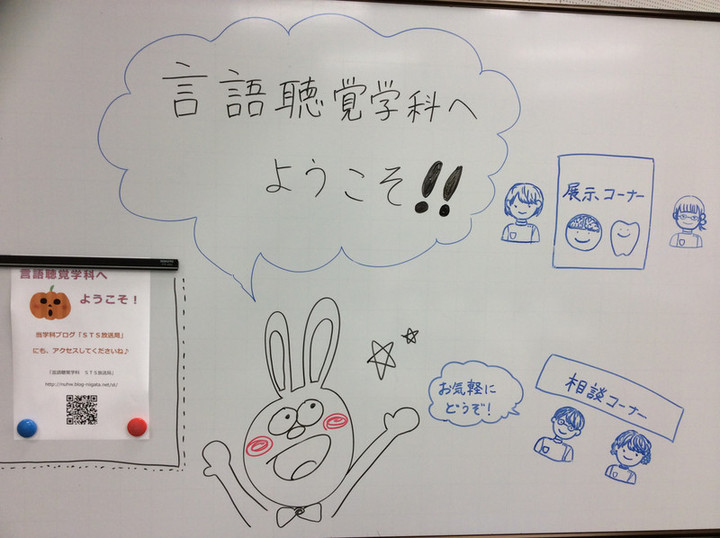 言語聴覚学科へ
ようこそ!!
展示コーナー
言語聴覚学科へ
ようこそ！
当学科ブログ「ＳＴＳ放送局」
にも、アクセスしてくださいね♪
「言語聴覚学科　ＳＴＳ放送局」
http://nuhw.blog-niigata.net/st/
お気軽に
どうぞ!
相談コーナー